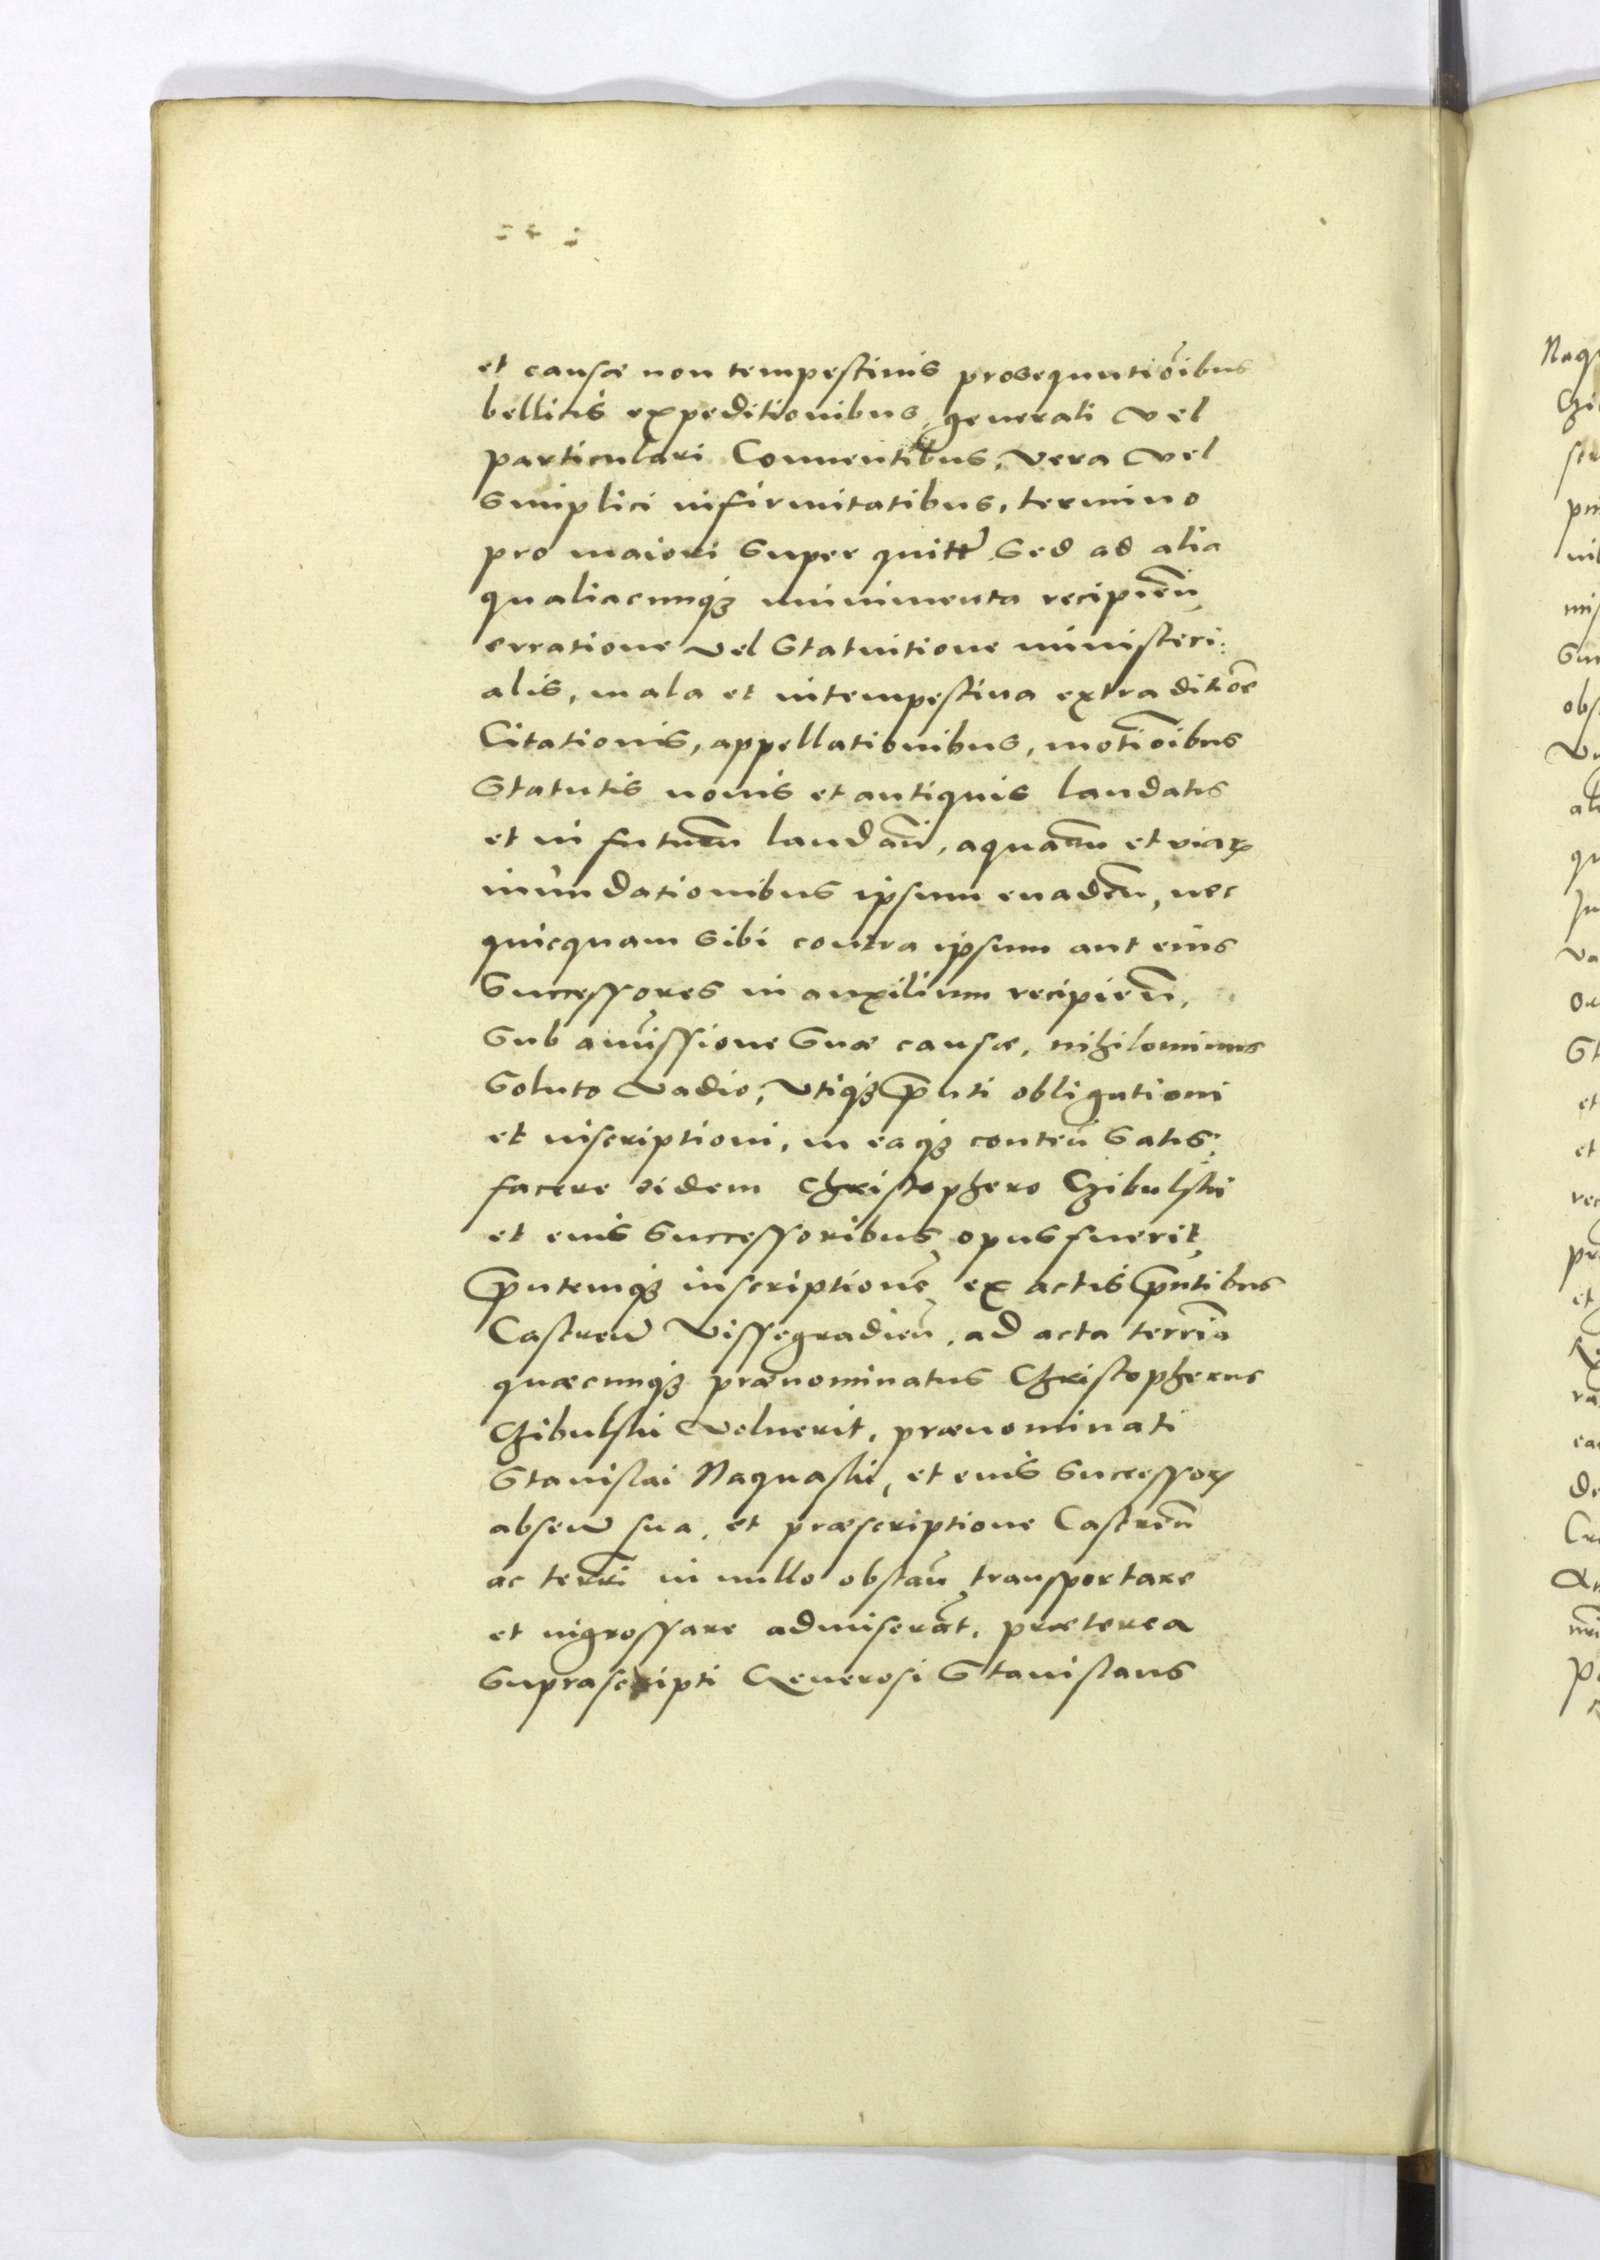 et causæ non tempestiuis prosequutiōibus
bellicis expeditionibus, generali vel
particulari Conuentibus, vera vel
simplici infirmitatibus, termino
pro maiori super quitt Sed ad alia
qualiacunqȝ munimenta recipien̄
erratione vel statuitione ministeri:
alis, mala et intempestiua extraditiōe
Citationis, appellationibus, motiōibus
statutis nouis et antiquis laudatis
et in futurū laudan̄, aquarū et viaꝝ
inundationibus ipsum euaden̄, nec
quicquam sibi contra ipsum aut eius
successores in auxilium recipien̄,
sub amissione suæ causæ, nihilominus
soluto vadio, vtiqȝ pn̄ti obligationi
et inscriptioni, in eaqȝ conten̄ satis:
facere eidem Christophero Czibulski
et eius successoribus opus fuerit,
pn̄temqȝ inscriptionē ex actis pn̄tibus
Castren̄ Vissegradien̄, ad acta terrīa
quæcunqȝ prænominatus Christopherus
Czibulski voluerit, prænominati
Stanislai Naquaski, et eius successoꝝ
absen̄ sua, et præscriptione Castren̄
ac terrī in nullo obstan̄ transportare
et ingrossare admiserāt, præterea
suprascripti Generosi Stanislaus